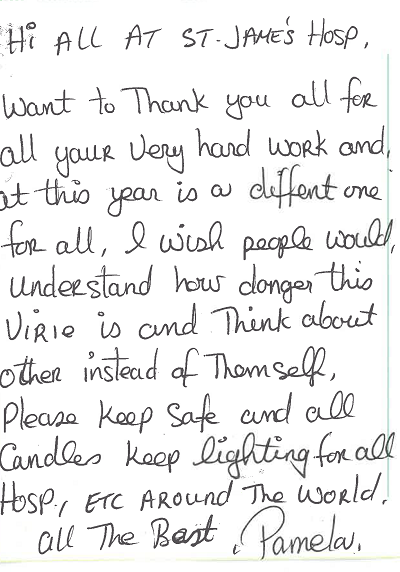 Hi ALL AT ST. JAME'S HOSP,
Want to Thank you all for
all your Very hard work and,
at this year is a diffent one
for all, I wish people would,
Understand how donger this
Virie is and Think about
other instead of Themself,
Please keep Safe and all
Candles keep lighting for all
Hosp, ETC AROUND The WORLD.
all The Best, Pamela.